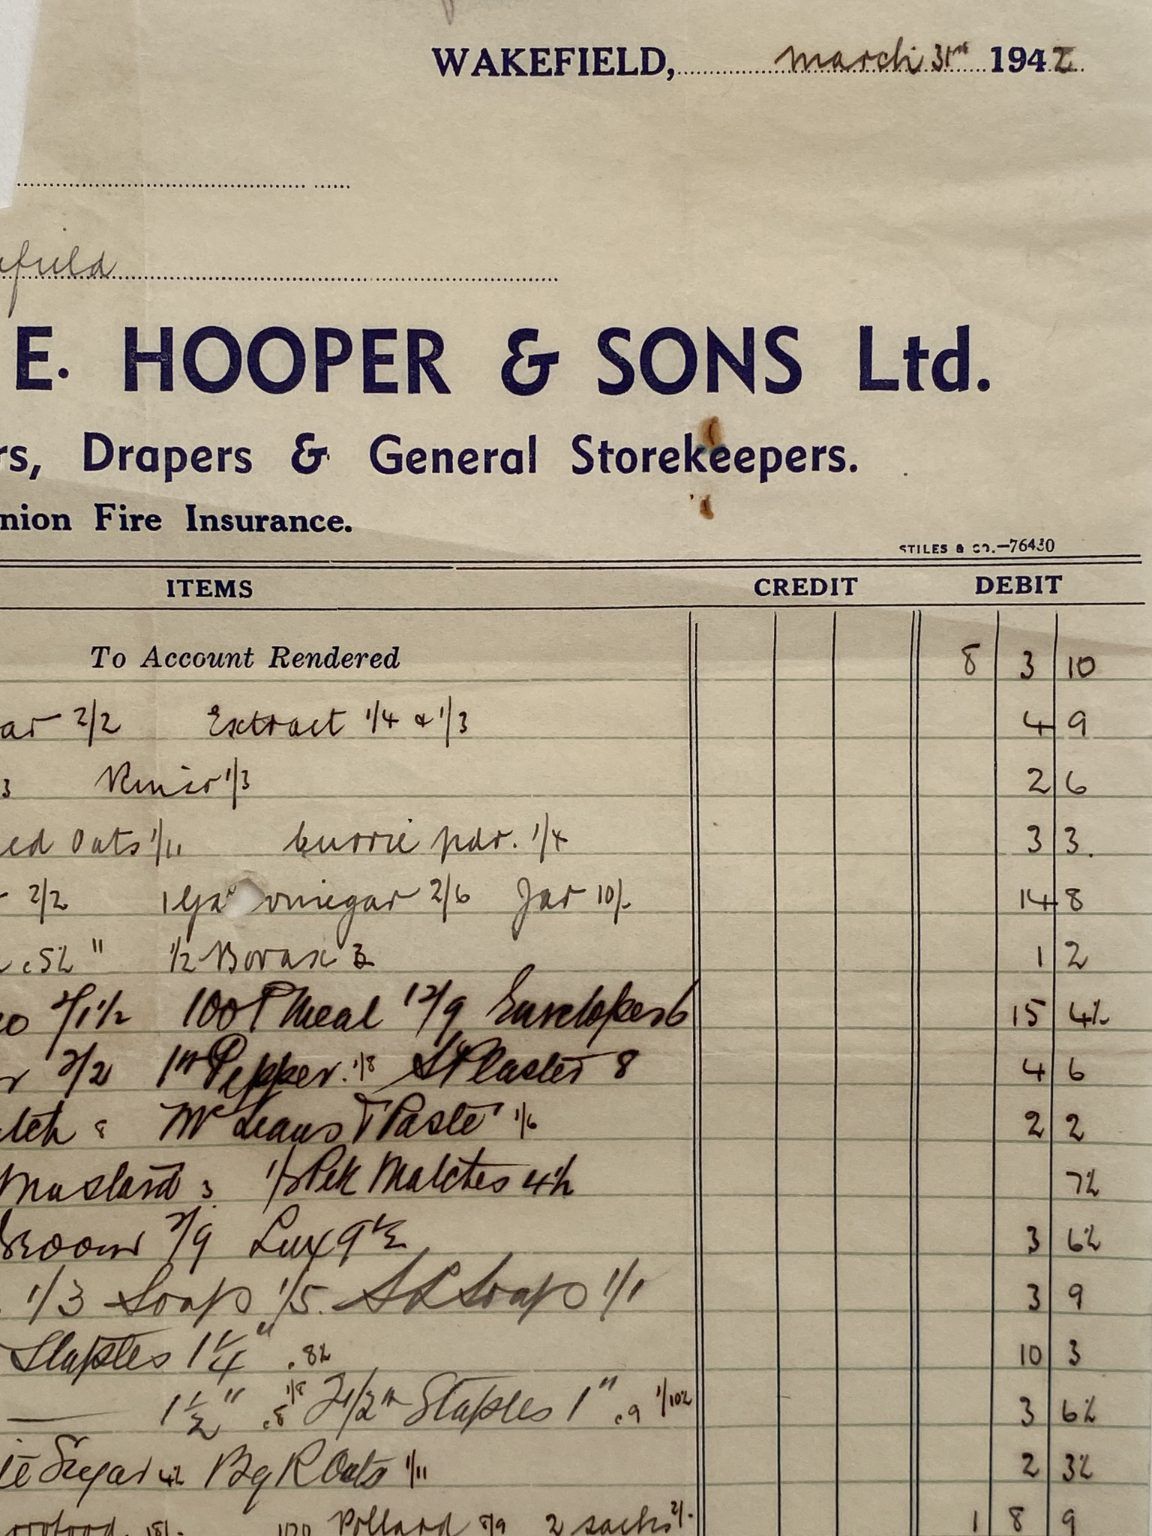 WAKEFIELD, march 31st 1942
E. HOOPER & SONS Ltd.
Drapers & General Storekeepers.
Fire Insurance.
STILES & CO.—76430
ITEMS CREDIT DEBIT
To Account Rendered 8 3 10
2/2 Extract 1/4 & 1/3 4 9
3 1/3 2 6
Oats 1/11 Currie pdr. 1/4 3 3.
2/2 1 Gal vinegar 2/6 Jar 10/- 14 8
.5½ " ½ Borax 3 1 2
2/1½ 100 P Meal 12/9 Envelopes 6 15 4½
2/2 1 lb Pepper 1/8 S Plaster 8 4 6
8 McLeans T Paste 1/6 2 2
Mustard 3 ½ Pck Matches 4½ 7½
Broom 2/9 Lux 9½ 3 6½
1/3 Soap 1/5. S L Soap 1/1 3 9
Staples 1¼" .8½ 10 3
1½" .8 1/8 Staples 1" .9 1/10½ 3 6½
Sugar 4½ Bg R Oats 1/11 2 3½
Pollard 8/9 2 sacks 2/- 1 8 9